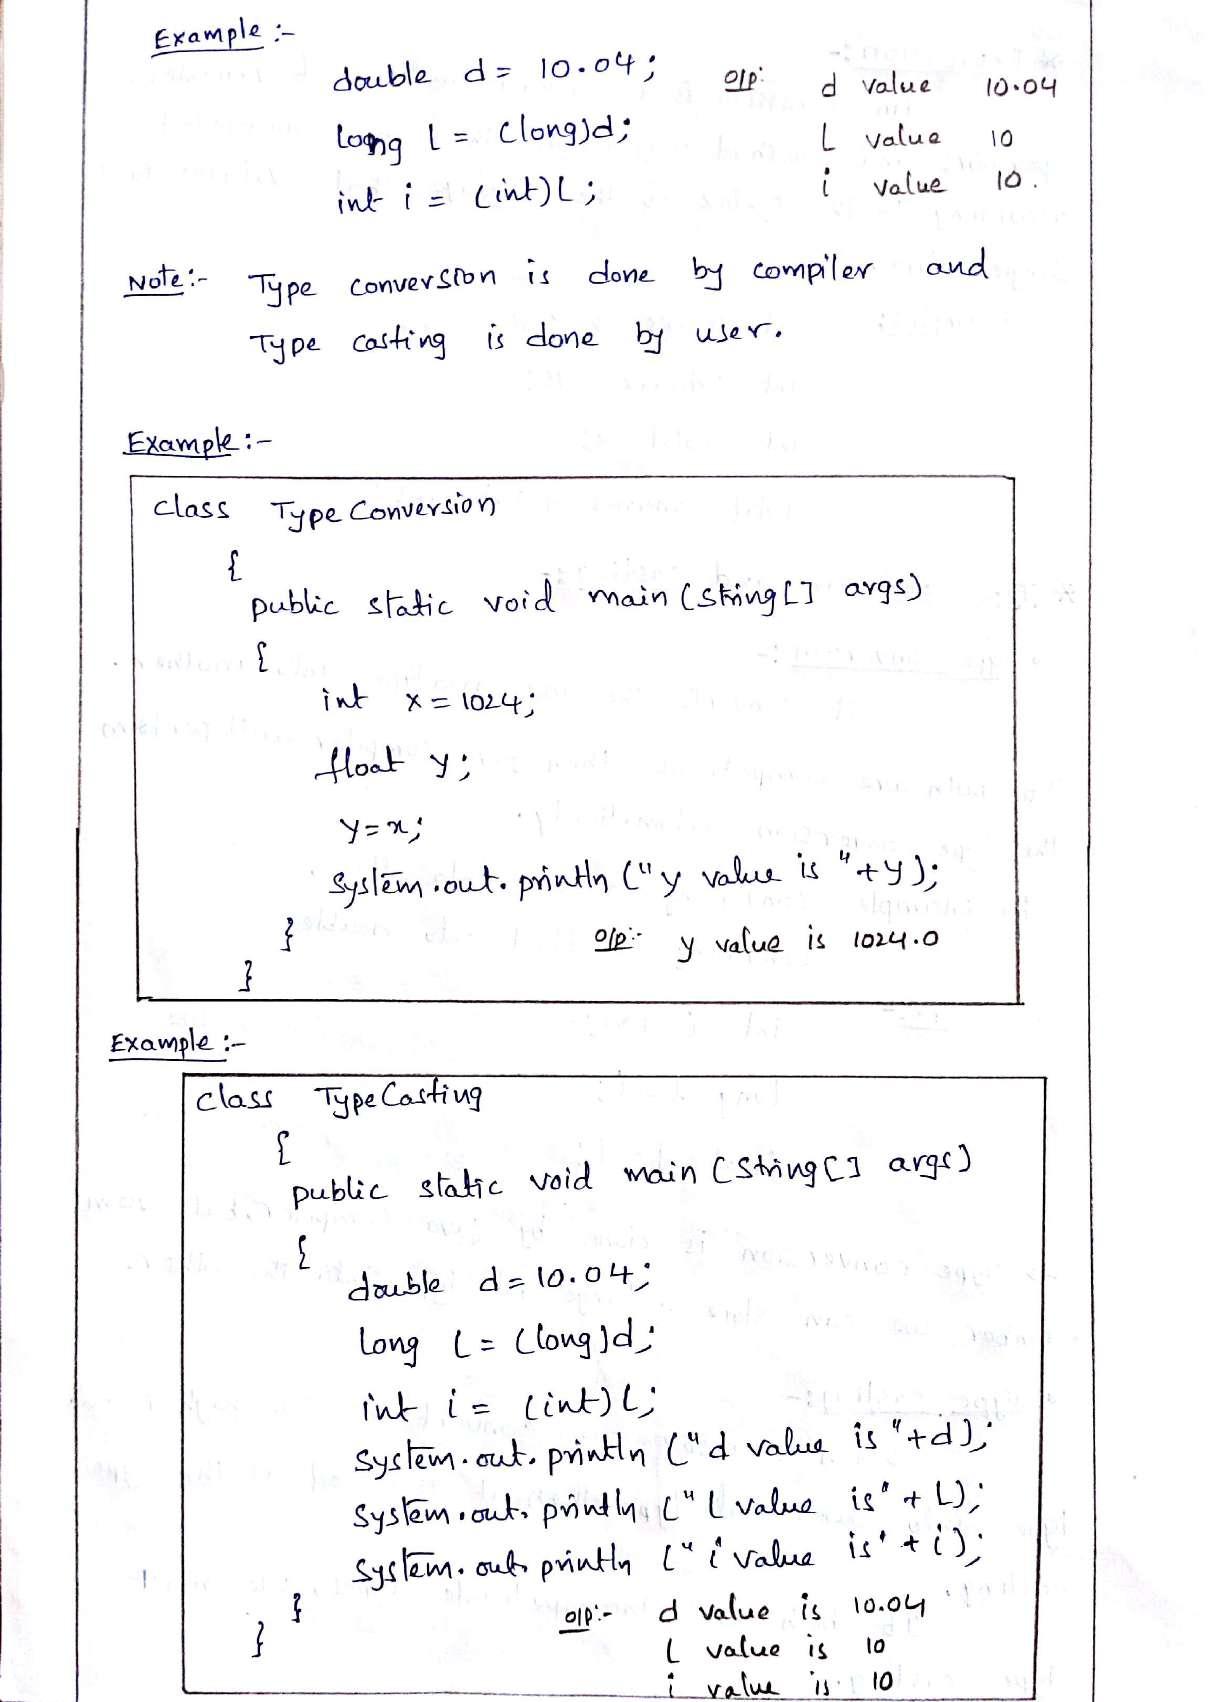 Example :-
double d = 10.04; o/p: d value 10.04
long l = (long)d; l value 10
int i = (int)l; i value 10.
Note:- Type conversion is done by compiler and
Type casting is done by user.
Example :-
class TypeConversion
{
public static void main (String[] args)
{
int x = 1024;
float y;
y=x;
System.out.println ("y value is "+y);
} o/p:- y value is 1024.0
}
Example :-
class TypeCasting
{
public static void main (String[] args)
{
double d = 10.04;
long l = (long)d;
int i = (int)l;
System.out.println ("d value is "+d);
System.out.println ("l value is" + l);
System.out.println ("i value is' + i);
} o/p:- d value is 10.04
} l value is 10
i value is 10